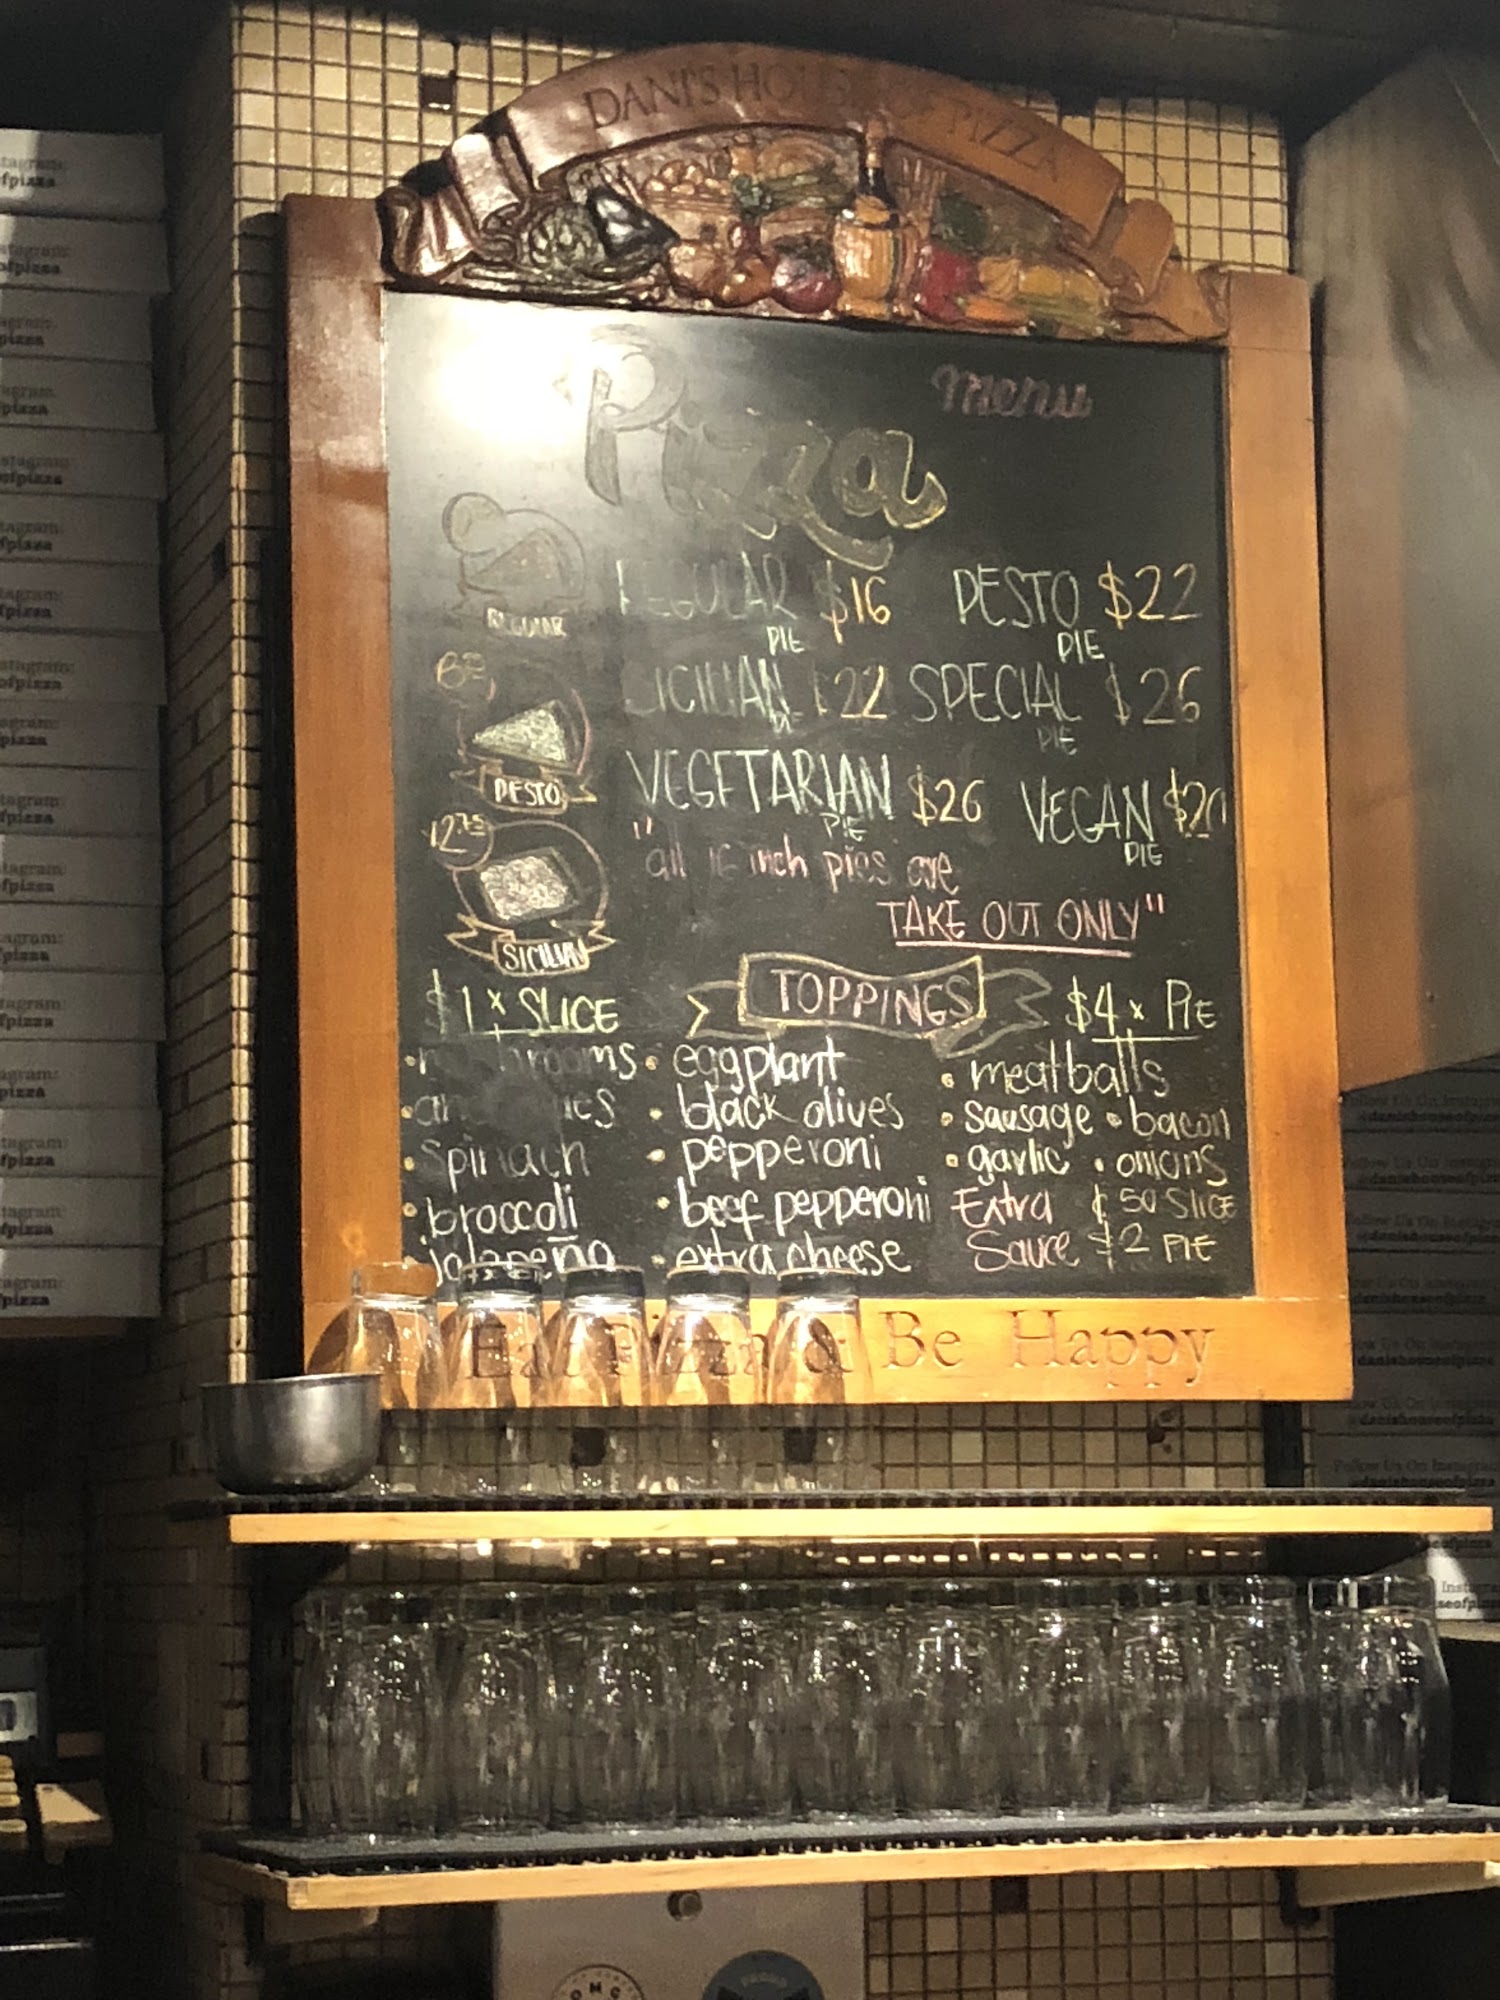 DANI'S HOUSE OF PIZZA
Pizza menu
REGULAR PIE $16
PESTO PIE $22
SICILIAN PIE $22
SPECIAL PIE $26
VEGETARIAN PIE $26
VEGAN PIE $20
"all 16 inch pies are
TAKE OUT ONLY"
REGULAR
PESTO
$2.75
SICILIAN
$1 x SLICE
TOPPINGS
$4 x PIE
• mushrooms
• anchovies
• spinach
• broccoli
• jalapeño
• eggplant
• black olives
• pepperoni
• beef pepperoni
• extra cheese
• meatballs
• sausage • bacon
• garlic • onions
Extra ¢ 50 SLICE
Sauce $2 PIE
Eat Pizza & Be Happy
Follow Us On Instagram:
@danishouseofpizza